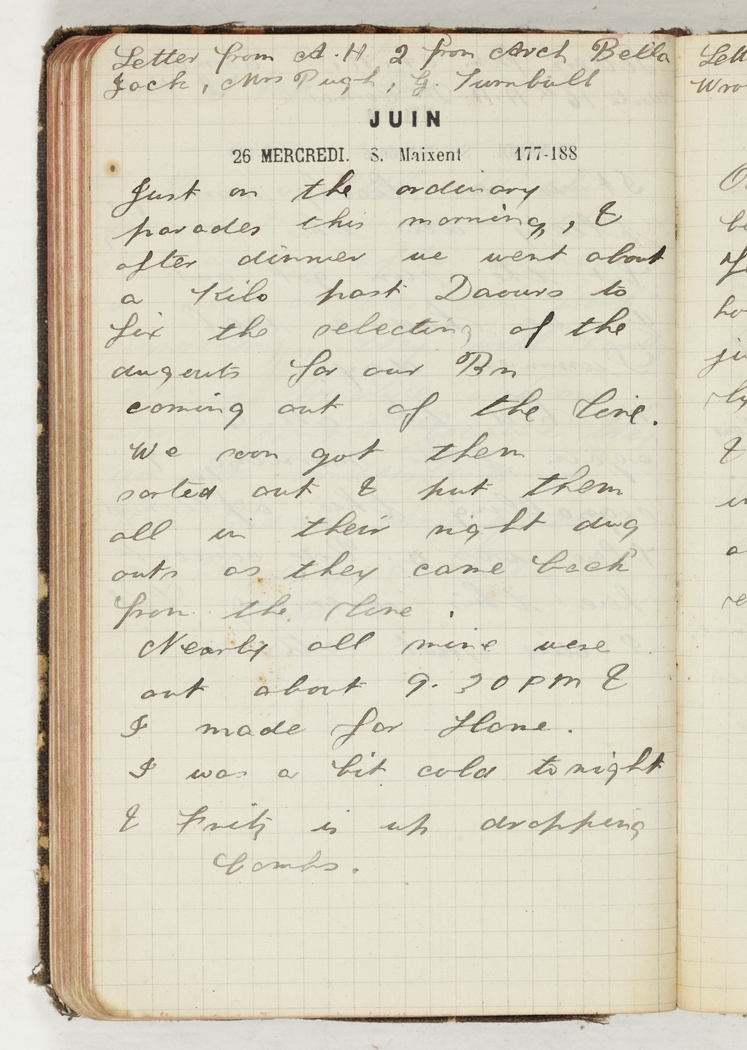 Letter from A. H 2 from Arch Bella
Jack, Mrs Pugh, G. Turnbull
JUIN
26 MERCREDI. S. Maixent 177-188
Just on the ordinary
parades this morning, &
after dinner we went about
a Kilo past Daours to
fix the selecting of the
dugouts for our Bn
coming out of the line.
We soon got them
sorted out & put them
all in their right dug
outs as they came back
from the line.
Nearly all mine were
out about 9.30 PM &
I made for Home.
I was a bit cold tonight
& Fritz is up dropping
bombs.
Lett
Wro